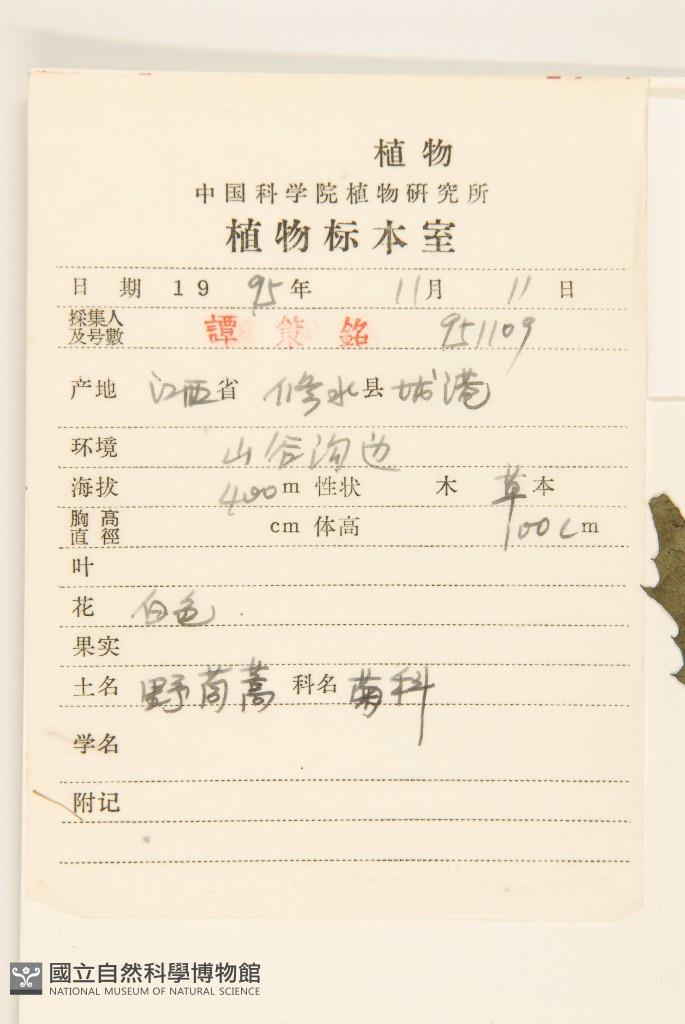 植物
中国科学院植物研究所
植物标本室
日期 1995年 11月 11日
採集人及号數 譚策銘 951109
产地 江西省 修水县 城港
环境 山谷沟边
海拔 400m 性状 木 草本
胸高直徑 cm 体高 100cm
叶
花 白色
果实
土名 野茼蒿 科名 菊科
学名
附记
國立自然科學博物館
NATIONAL MUSEUM OF NATURAL SCIENCE